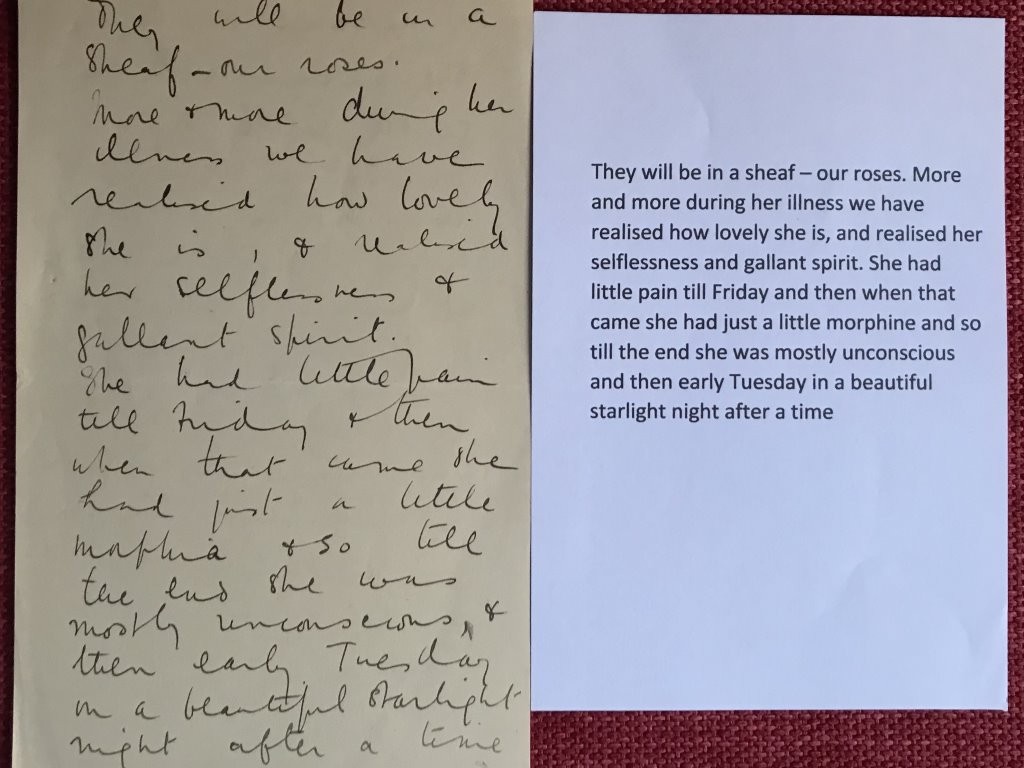 They will be in a
sheaf – our roses.
More & more during her
illness we have
realised how lovely
she is, & realised
her selflessness &
gallant spirit.
She had little pain
till Friday & then
when that came she
had just a little
morphia & so till
the end she was
mostly unconscious, &
then early Tuesday
in a beautiful starlight
night after a time
They will be in a sheaf – our roses. More
and more during her illness we have
realised how lovely she is, and realised her
selflessness and gallant spirit. She had
little pain till Friday and then when that
came she had just a little morphine and so
till the end she was mostly unconscious
and then early Tuesday in a beautiful
starlight night after a time